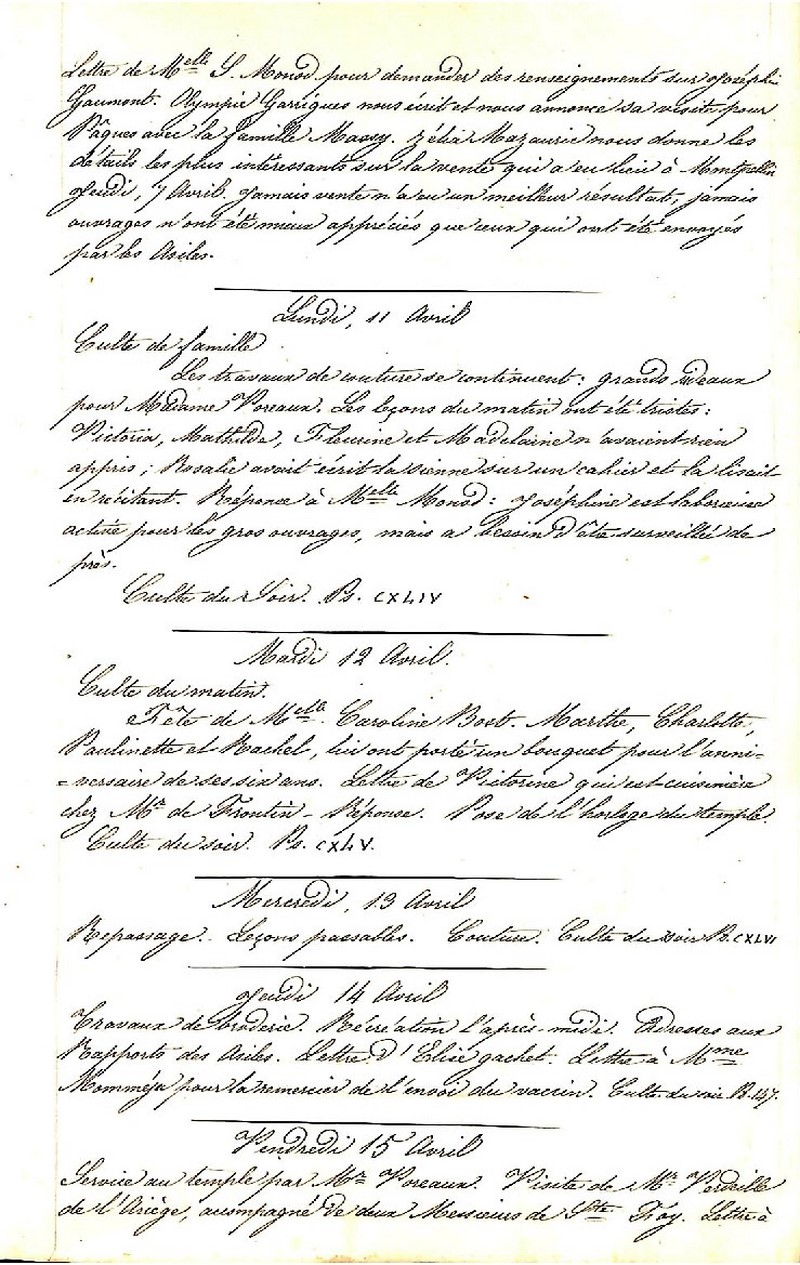 Lettre de Melle S. Monod pour demander des renseignements sur Joséphine
Gaumont. Olympie Garrigues nous écrit et nous annonce sa visite pour
Pâques avec la famille Massy. Zélia Mazauric nous donne les
détails les plus intéressants sur la vente qui a eu lieu à Montpellier
Jeudi, 7 Avril. Jamais vente n'a eu un meilleur résultat, jamais
ouvrages n'ont été mieux appréciés que ceux qui ont été envoyés
par les Asiles.
Lundi, 11 Avril
Culte de famille
Les travaux de couture se continuent : grands rideaux
pour Madame Poreaux. Les leçons du matin ont été tristes :
Victoria, Mathilde, Fleurine et Madelaine n'avaient rien
appris ; Rosalie avait écrit la sienne sur un cahier et la lisait
en récitant. Réponse à Melle Monod : Joséphine est laborieuse
active pour les gros ouvrages, mais a besoin d'être surveillée de
près.
Culte du Soir. Ps. CXLIV
Mardi 12 Avril.
Culte du matin.
Fête de Melle Caroline Bost. Marthe, Charlotte,
Paulinette et Rachel, lui ont porté un bouquet pour l'anni-
=versaire de ses six ans. Lettre de Victorine qui est cuisinière
chez Mr de Frontin - Réponse. Pose de l'horloge du temple.
Culte du soir. Ps. CXLV.
Mercredi, 13 Avril
Repassage. Leçons passables. Couture. Culte du soir Ps. CXLVI
Jeudi 14 Avril
Travaux de broderie. Récréation l'après-midi. Adresses aux
Rapports des Asiles. Lettre d'Elise Gachet. Lettre à Mme
Momméja pour la remercier de l'envoi du vaccin. Culte du soir Ps. 147.
Vendredi 15 Avril
Service au temple par Mr Poreaux. Visite de Mr Verdeille
de l'Ariège, accompagné de deux Messieurs de Ste Foy. Lettre à